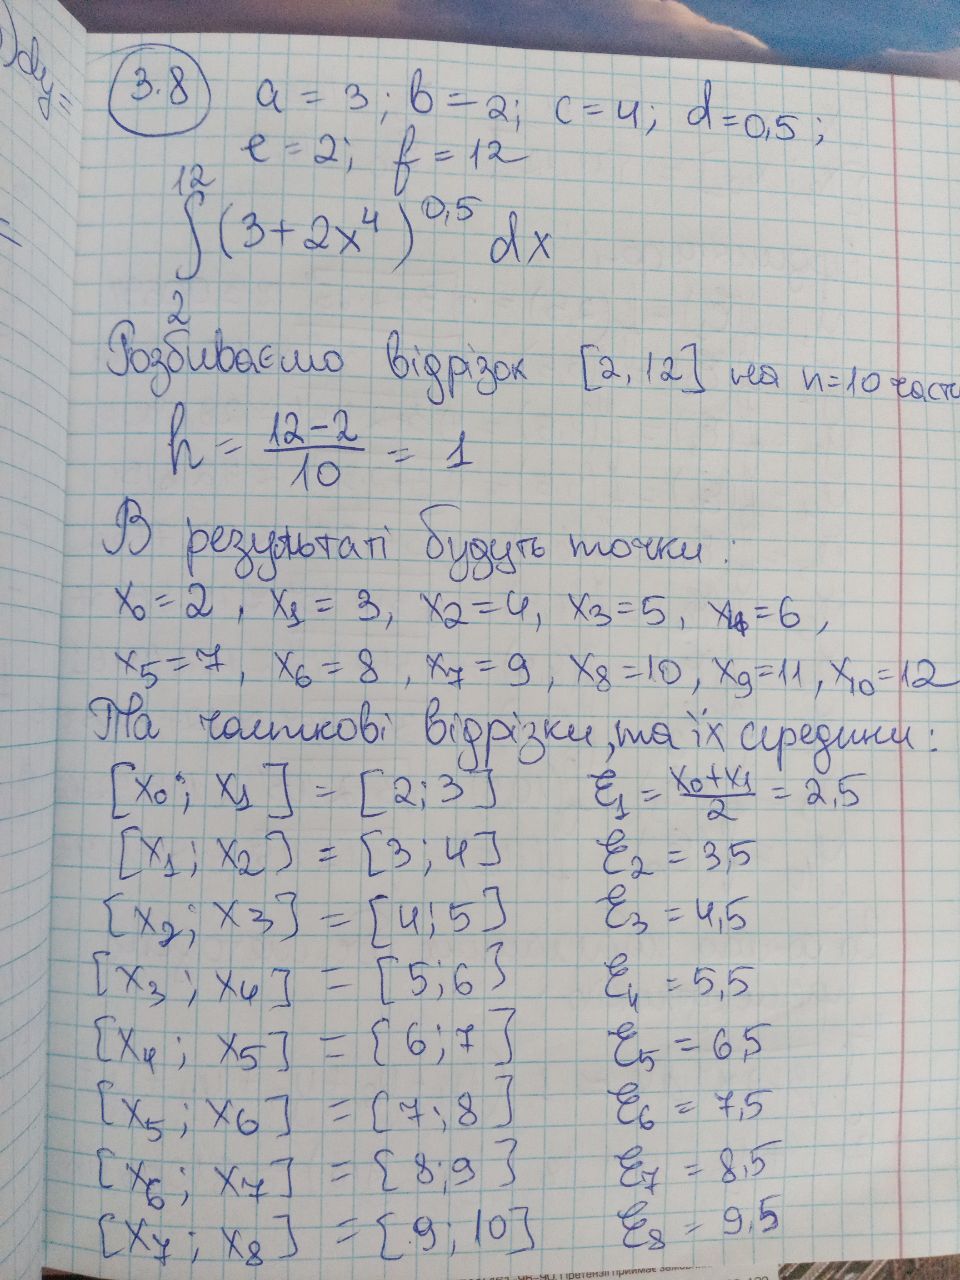 )dy=
=
3.8 a = 3; b = 2; c = 4; d = 0,5;
e = 2; f = 12
12
∫ (3 + 2x⁴)^0,5 dx
2
Розбиваємо відрізок [2, 12] на n=10 части
h = (12-2)/10 = 1
В результаті будуть точки:
x₀ = 2, x₁ = 3, x₂ = 4, x₃ = 5, x₄ = 6,
x₅ = 7, x₆ = 8, x₇ = 9, x₈ = 10, x₉ = 11, x₁₀ = 12
Та часткові відрізки, та їх середини:
[x₀; x₁] = [2; 3] ξ₁ = (x₀+x₁)/2 = 2,5
[x₁; x₂] = [3; 4] ξ₂ = 3,5
[x₂; x₃] = [4; 5] ξ₃ = 4,5
[x₃; x₄] = [5; 6] ξ₄ = 5,5
[x₄; x₅] = [6; 7] ξ₅ = 6,5
[x₅; x₆] = [7; 8] ξ₆ = 7,5
[x₆; x₇] = [8; 9] ξ₇ = 8,5
[x₇; x₈] = [9; 10] ξ₈ = 9,5